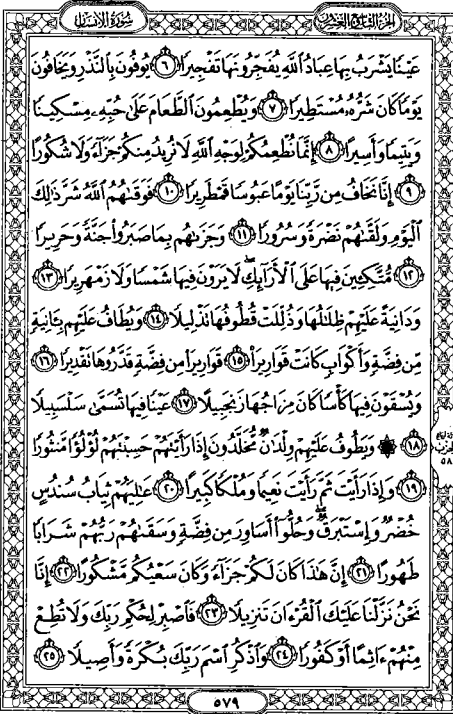 الجزء التاسع والعشرون
سورة الإنسان
عَيْنًا يَشْرَبُ بِهَا عِبَادُ اللَّهِ يُفَجِّرُونَهَا تَفْجِيرًا ٦ يُوفُونَ بِالنَّذْرِ وَيَخَافُونَ
يَوْمًا كَانَ شَرُّهُ مُسْتَطِيرًا ٧ وَيُطْعِمُونَ الطَّعَامَ عَلَىٰ حُبِّهِ مِسْكِينًا
وَيَتِيمًا وَأَسِيرًا ٨ إِنَّمَا نُطْعِمُكُمْ لِوَجْهِ اللَّهِ لَا نُرِيدُ مِنكُمْ جَزَاءً وَلَا شُكُورًا
٩ إِنَّا نَخَافُ مِن رَّبِّنَا يَوْمًا عَبُوسًا قَمْطَرِيرًا ١٠ فَوَقَىٰهُمُ اللَّهُ شَرَّ ذَٰلِكَ
الْيَوْمِ وَلَقَّىٰهُمْ نَضْرَةً وَسُرُورًا ١١ وَجَزَىٰهُم بِمَا صَبَرُوا جَنَّةً وَحَرِيرًا
١٢ مُّتَّكِـِٔينَ فِيهَا عَلَى الْأَرَائِكِ لَا يَرَوْنَ فِيهَا شَمْسًا وَلَا زَمْهَرِيرًا ١٣
وَدَانِيَةً عَلَيْهِمْ ظِلَٰلُهَا وَذُلِّلَتْ قُطُوفُهَا تَذْلِيلًا ١٤ وَيُطَافُ عَلَيْهِم بِـَٔانِيَةٍ
مِّن فِضَّةٍ وَأَكْوَابٍ كَانَتْ قَوَارِيرَا ١٥ قَوَارِيرَا مِن فِضَّةٍ قَدَّرُوهَا تَقْدِيرًا ١٦
وَيُسْقَوْنَ فِيهَا كَأْسًا كَانَ مِزَاجُهَا زَنجَبِيلًا ١٧ عَيْنًا فِيهَا تُسَمَّىٰ سَلْسَبِيلًا
١٨ ۞ وَيَطُوفُ عَلَيْهِمْ وِلْدَٰنٌ مُّخَلَّدُونَ إِذَا رَأَيْتَهُمْ حَسِبْتَهُمْ لُؤْلُؤًا مَّنثُورًا
١٩ وَإِذَا رَأَيْتَ ثَمَّ رَأَيْتَ نَعِيمًا وَمُلْكًا كَبِيرًا ٢٠ عَٰلِيَهُمْ ثِيَابُ سُندُسٍ
خُضْرٌ وَإِسْتَبْرَقٌ وَحُلُّوا أَسَاوِرَ مِن فِضَّةٍ وَسَقَىٰهُمْ رَبُّهُمْ شَرَابًا
طَهُورًا ٢١ إِنَّ هَٰذَا كَانَ لَكُمْ جَزَاءً وَكَانَ سَعْيُكُم مَّشْكُورًا ٢٢ إِنَّا
نَحْنُ نَزَّلْنَا عَلَيْكَ الْقُرْءَانَ تَنزِيلًا ٢٣ فَاصْبِرْ لِحُكْمِ رَبِّكَ وَلَا تُطِعْ
مِنْهُمْ ءَاثِمًا أَوْ كَفُورًا ٢٤ وَاذْكُرِ اسْمَ رَبِّكَ بُكْرَةً وَأَصِيلًا ٢٥
٥٧٩
٥٨